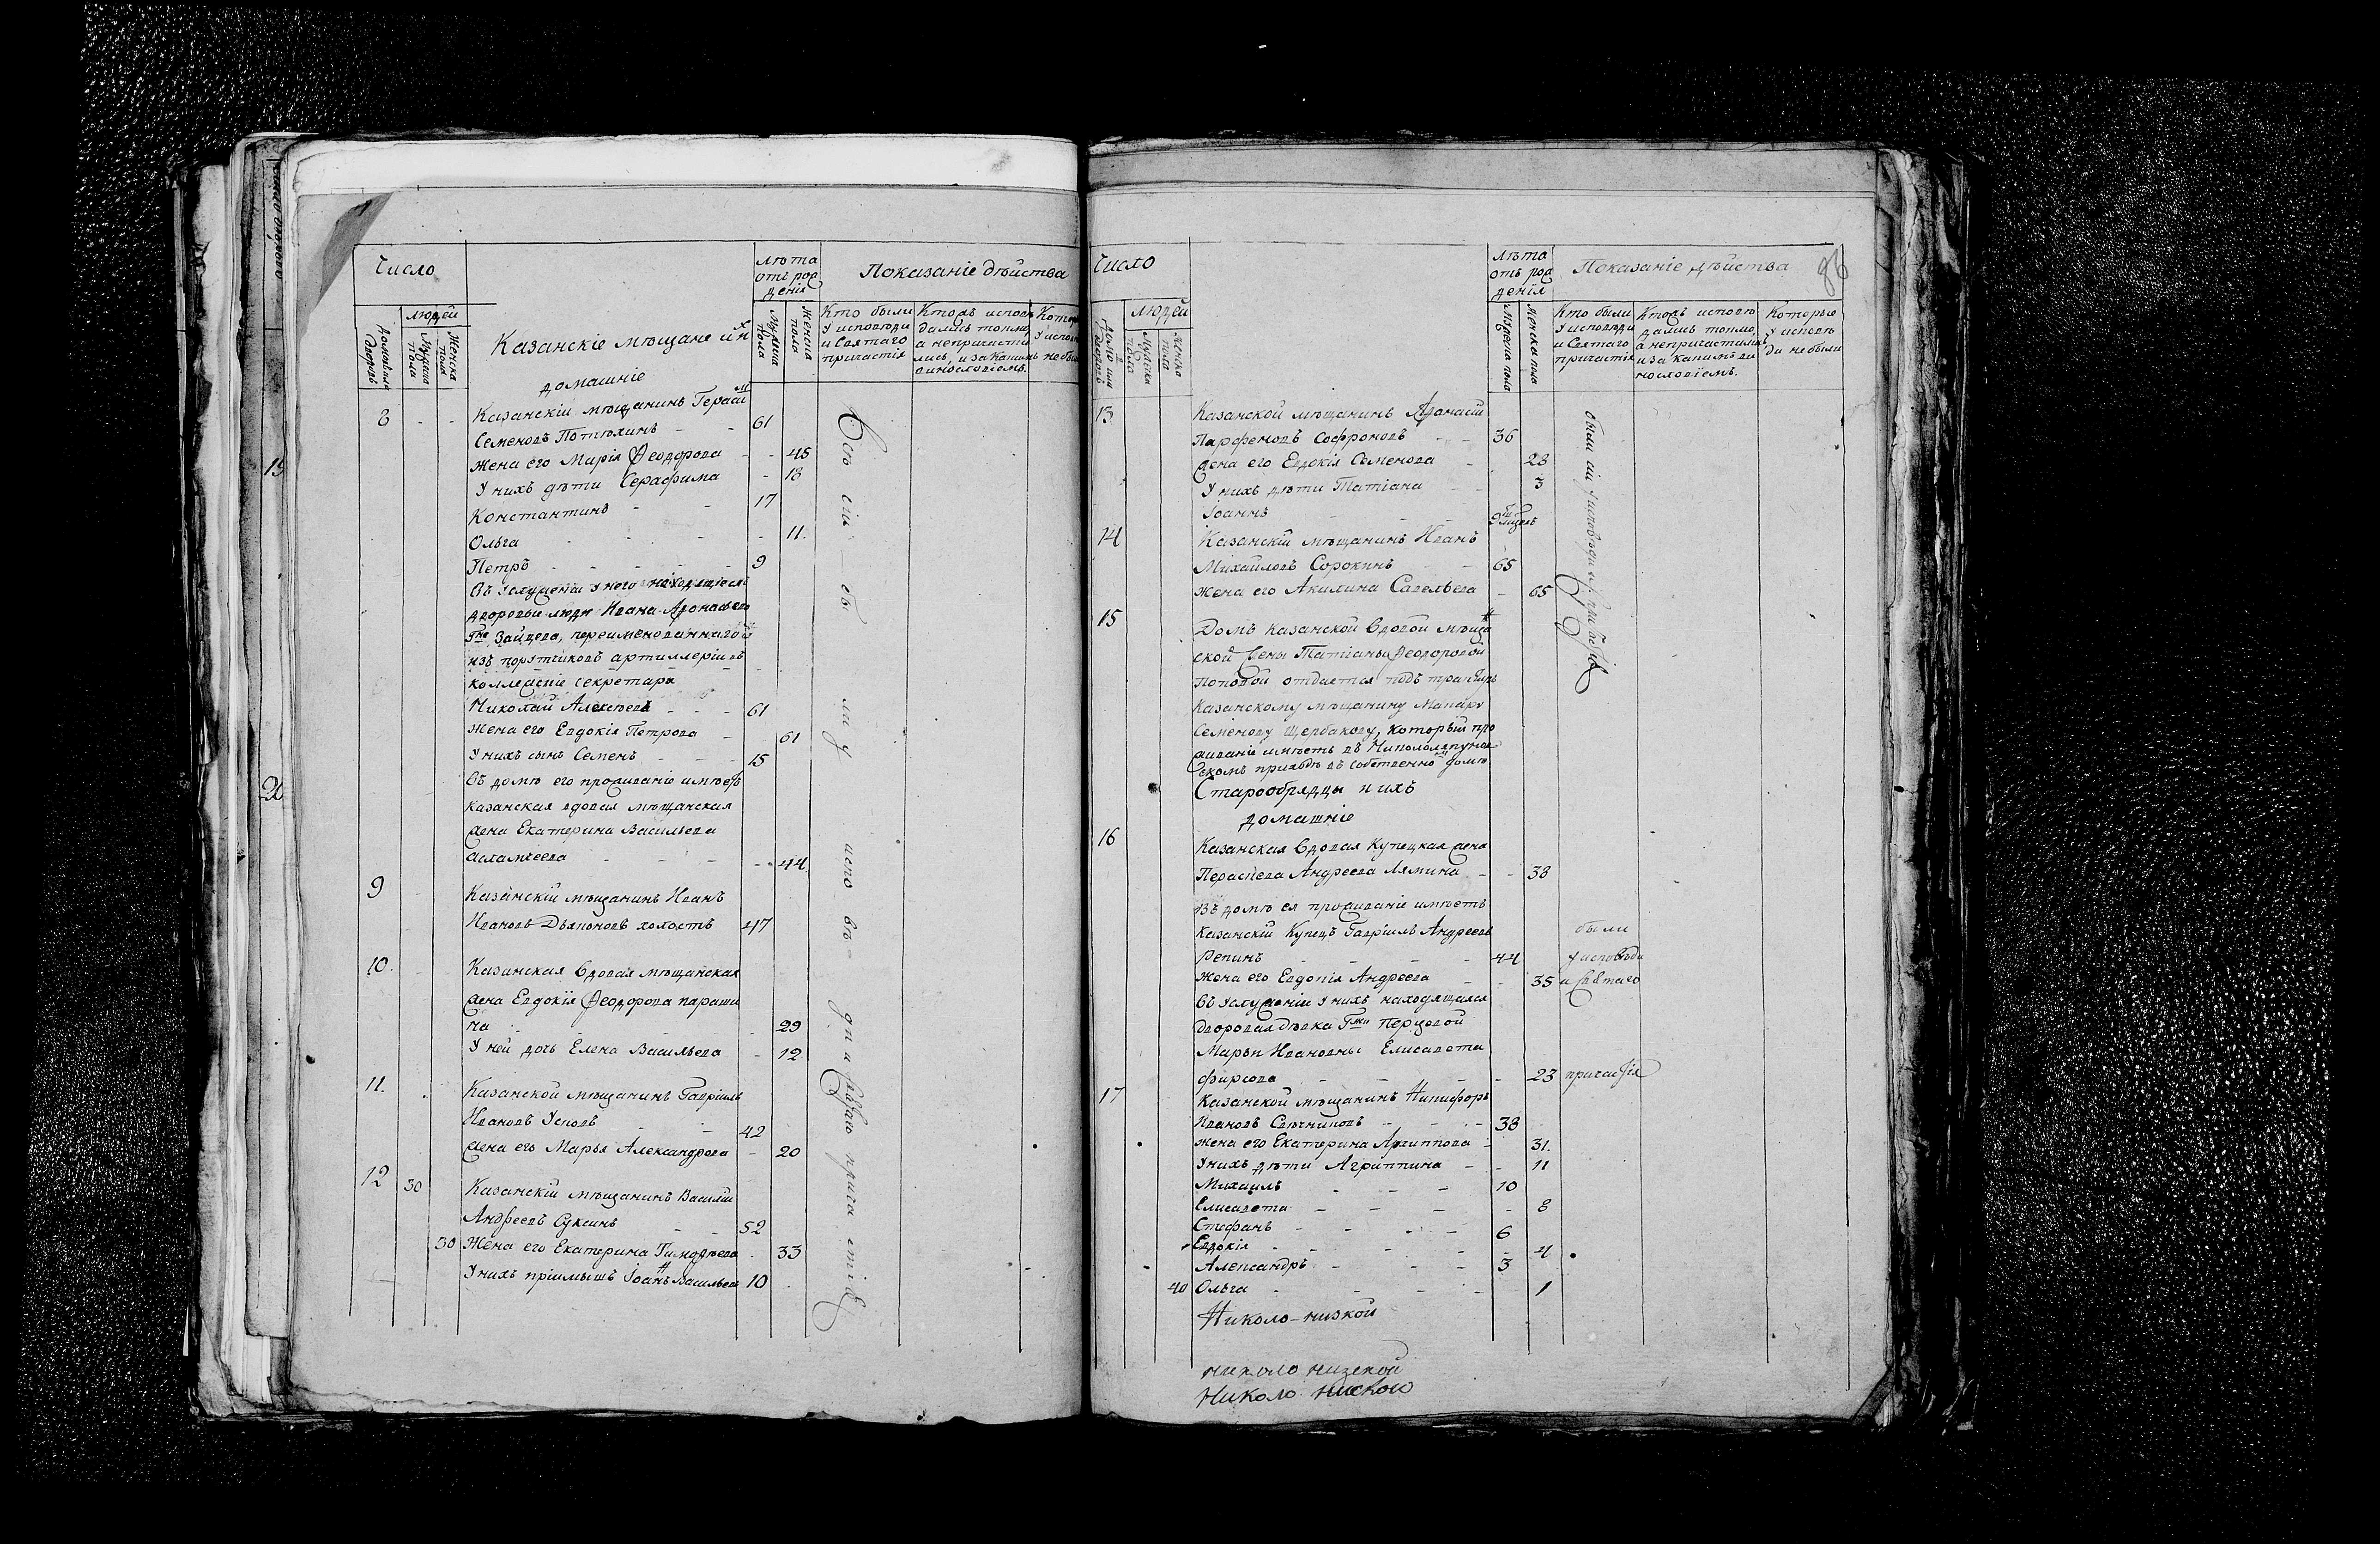 Число
лѣта
отъ рож
денія
Показаніе дѣйства
людей
Домовъ или
дворовъ
Мужеска
пола
Женска
пола
Казанскіе мѣщане и их
домашніе
Мужеска
пола
Женска
пола
Кто были
у исповѣди
и Святаго
причастія
Ктожъ исповѣ
дались токмо,
а непричасти
лись, и за каким
винословіемъ.
8 - - Казанскій мѣщанинъ Герасим
Семеновъ Потѣхинъ - - 61
жена его Марія Феодорова - - 45
У нихъ дѣти Серафима - 18
Константинъ - - 17
Ольга - - - - 11.
Петръ - - - - 9
Въ услуженіи у него находящіеся
дворовые люди Ивана Афонасьева
Гна Зайцева, переименованнаго
изъ порутчиковъ артиллеріи въ
коллежскіе секретари
Николай Алексѣевъ - - - 61
Жена его Евдокія Петрова - 61
У нихъ сынъ Семенъ - - - 15
Въ домѣ его проживаніе имѣетъ
казанская вдовая мѣщанская
жена Екатерина Васильева
- - - 44
9 Казанскій мѣщанинъ Иванъ
Ивановъ Дьяконовъ холостъ 47
10. Казанская вдовая мѣщанская
жена Евдокія Феодорова параши
на - 29
У ней дочь Елена Васильева - 12
11. Казанской мѣщанинъ Гавріилъ
Ивановъ Усковъ - - 42
жена его Марья Александрова - 20
12 30 Казанскій мѣщанинъ Василій
Андреевъ Сукинъ - - 52
30 Жена его Екатерина Тимофѣева . 33
У нихъ пріимышъ Іоаннъ Васильевъ 10
Всѣ сіи бы ли у испо вѣ ди и Святаго прича стія
19
20
Число
лѣта
отъ рож
денія
Показаніе дѣйства
86
людей
Домовъ или
дворовъ
Мужеска
пола
Женска
пола
Мужеска пола
Женска пола
Кто были
у исповѣди
и Святаго
причастія
Ктожъ исповѣ
дались токмо,
а непричастились
и за какимъ ви
нословіемъ.
Которые
у исповѣ
ди не были
13 Казанской мѣщанинъ Афанасій
Парфеновъ Софроновъ - - 36
жена его Евдокія Семенова - 28
У нихъ дѣти Татіана - - 3
Іоаннъ - - - 9
14 Казанскій мѣщанинъ Иванъ
Михайловъ Сорокинъ - - 65
жена его Акилина Савельева - 65
15 Домъ казанской вдовой мѣщан
ской жены Татіаны Феодоровой
Поповой отдается подъ трактиръ
казанскому мѣщанину Макару
Семенову Щербакову, который про
живаніе имѣетъ въ Никололяпунов
скомъ приходѣ въ собственно домѣ
Старообрядцы и ихъ
домашніе
16 Казанская вдовая купецкая жена
Параскева Андреева Лямина - - 38
Въ домѣ ея проживаніе имѣетъ
казанскій купецъ Гавріилъ Андреевъ
Репинъ - - - - 44
Жена его Евдокія Андреева - - 35
въ услуженіи у нихъ находящаяся
дворовая дѣвка Гжи Перцовой
Марьи Ивановны Елисавета
Фирсова - - - - 23
17 Казанской мѣщанинъ Никифоръ
Ивановъ Свѣчниковъ - - - 38
жена его Екатерина Архиппова - 31.
У нихъ дѣти Агриппина - - 11
Михаилъ - - - 10
Елисавета - - - - 8
Стефанъ - - - - 6
Евдокія - - - - - 4
Александръ - - - 3
40 Ольга - - - - 1
были сіи у исповѣди и Святаго
были
у исповѣди
и Святаго
причастія
Николо-низкой
николо низской
Николо ниской